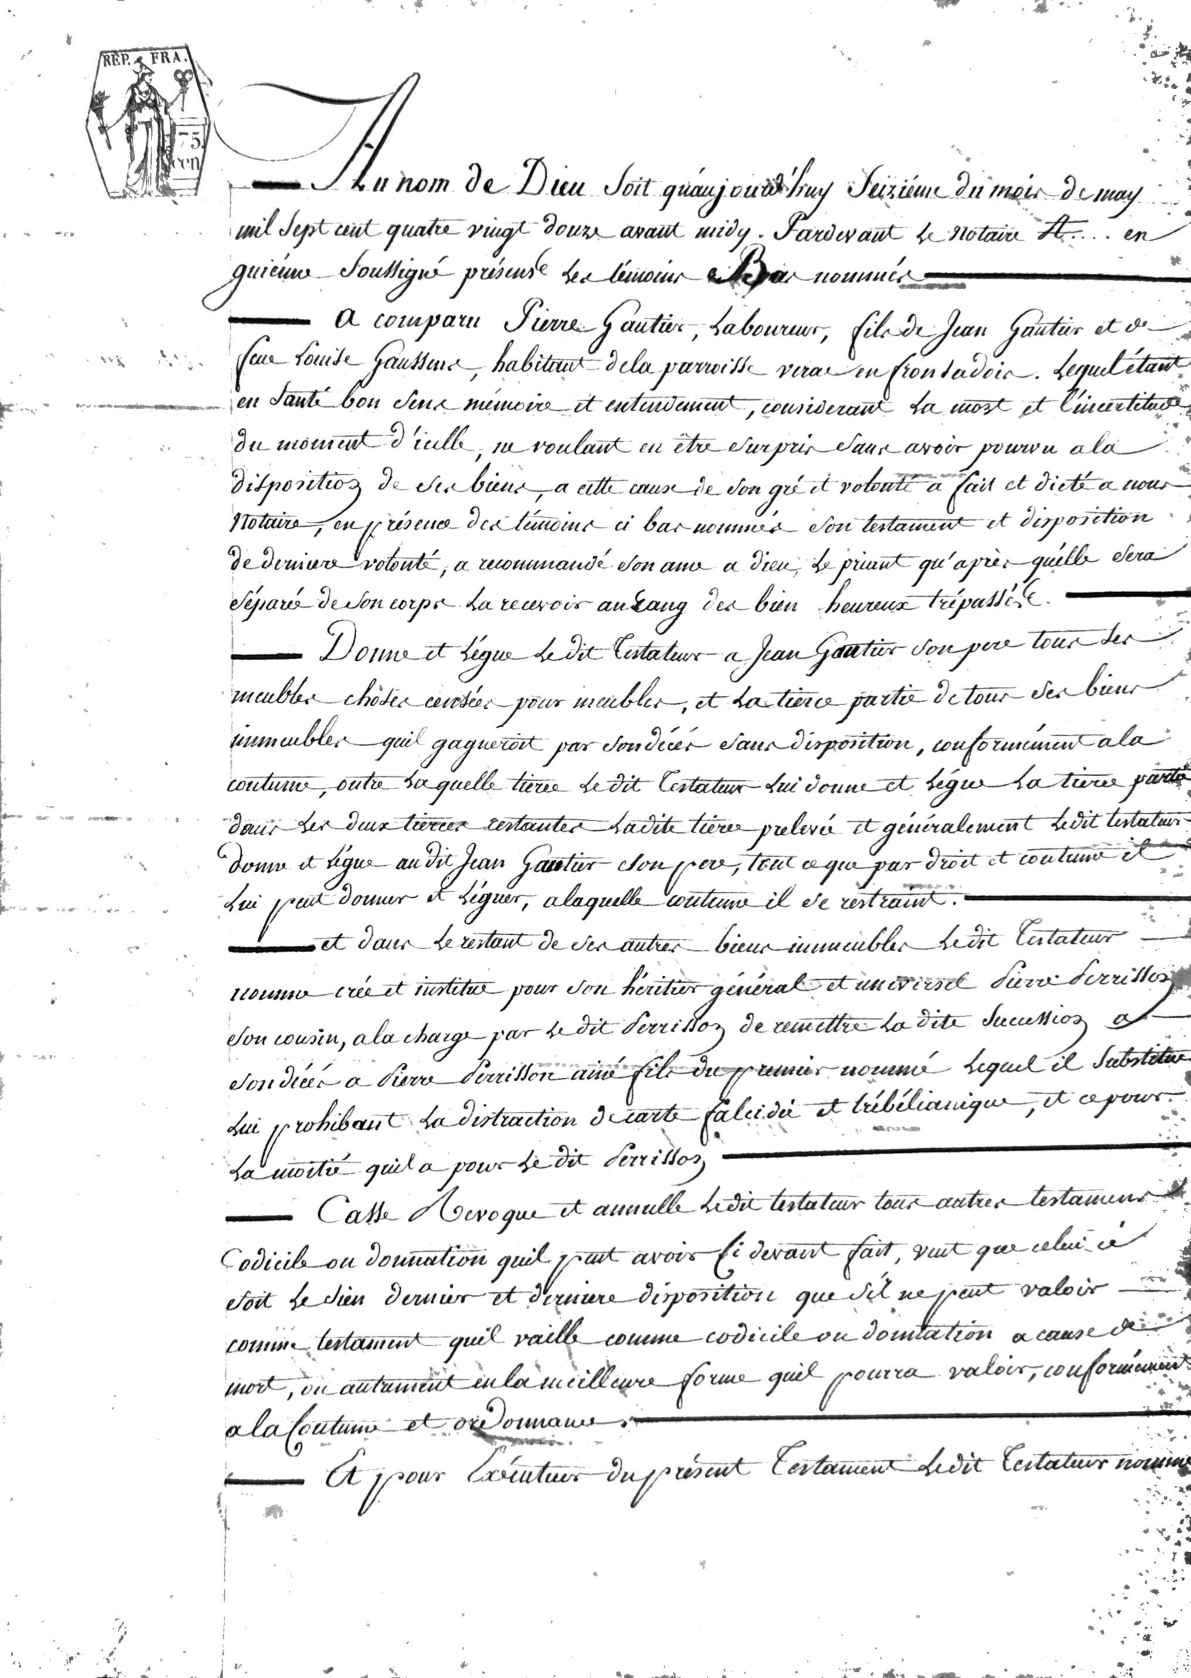 REP. FRA.
75
cen
Au nom de Dieu soit qu'aujourd'huy seizième du mois de may
mil sept cent quatre vingt douze avant midy. Pardevant le Notaire R.... en
guiénne soussigné présens les témoins Bas nommés
a comparu Pierre Gautier, Laboureur, fils de Jean Gautier et de
feue Louise Gaussens, habitant de la parroisse verac en fronsadois. Lequel étant
en santé bon sens mémoire et entendement, considerant la mort et l'incertitude
du moment d'icelle, ne voulant en être surpris sans avoir pourvu a la
disposition de ses biens, a cette cause de son gré et volonté a fait et dicté a nous
Notaire, en présence des témoins ci bas nommés son testament et disposition
de derniere volonté, a recommandé son ame a dieu, le priant qu'après qu'elle sera
séparée de son corps la recevoir au rang des bien heureux trépassés.
Donne et légue le dit Testateur a Jean Gautier son pere tous ses
meubles choses censées pour meubles, et la tierce partie de tous ses biens
immeubles quil gagneroit par son décés sans disposition, conformément a la
coutume, outre laquelle tierce le dit Testateur lui donne et légue la tierce partie
dans les deux tierces restantes ladite tierce prelevée et généralement le dit testateur
donne et légue au dit Jean Gautier son pere, tout ce que par droit et coutume il
lui peut donner et léguer, a laquelle coutume il se restraint.
et dans le restant de ses autres biens immeubles le dit Testateur
nomme crée et institue pour son héritier général et universel Pierre Perrisson
son cousin, a la charge par le dit Perrisson de remettre la dite succession a
son décés a Pierre Perrisson ainé fils du premier nommé lequel il substitue
lui prohibant la distraction de carte falcidie et trébélianique, et ce pour
la moitié quil a pour le dit Perrisson
Casse Revoque et annulle le dit testateur tous autres testamens
Codicile ou donnation quil peut avoir ci devant fait, veut que celui ci
soit le sien dernier et derniere disposition que s'il ne peut valoir
comme testament quil vaille comme codicile ou donnation a cause de
mort, ou autrement en la meilleure forme quil pourra valoir, conformément
a la Coutume et ordonnance.
Et pour Exécuteur du présent Testament le dit Testateur nomme